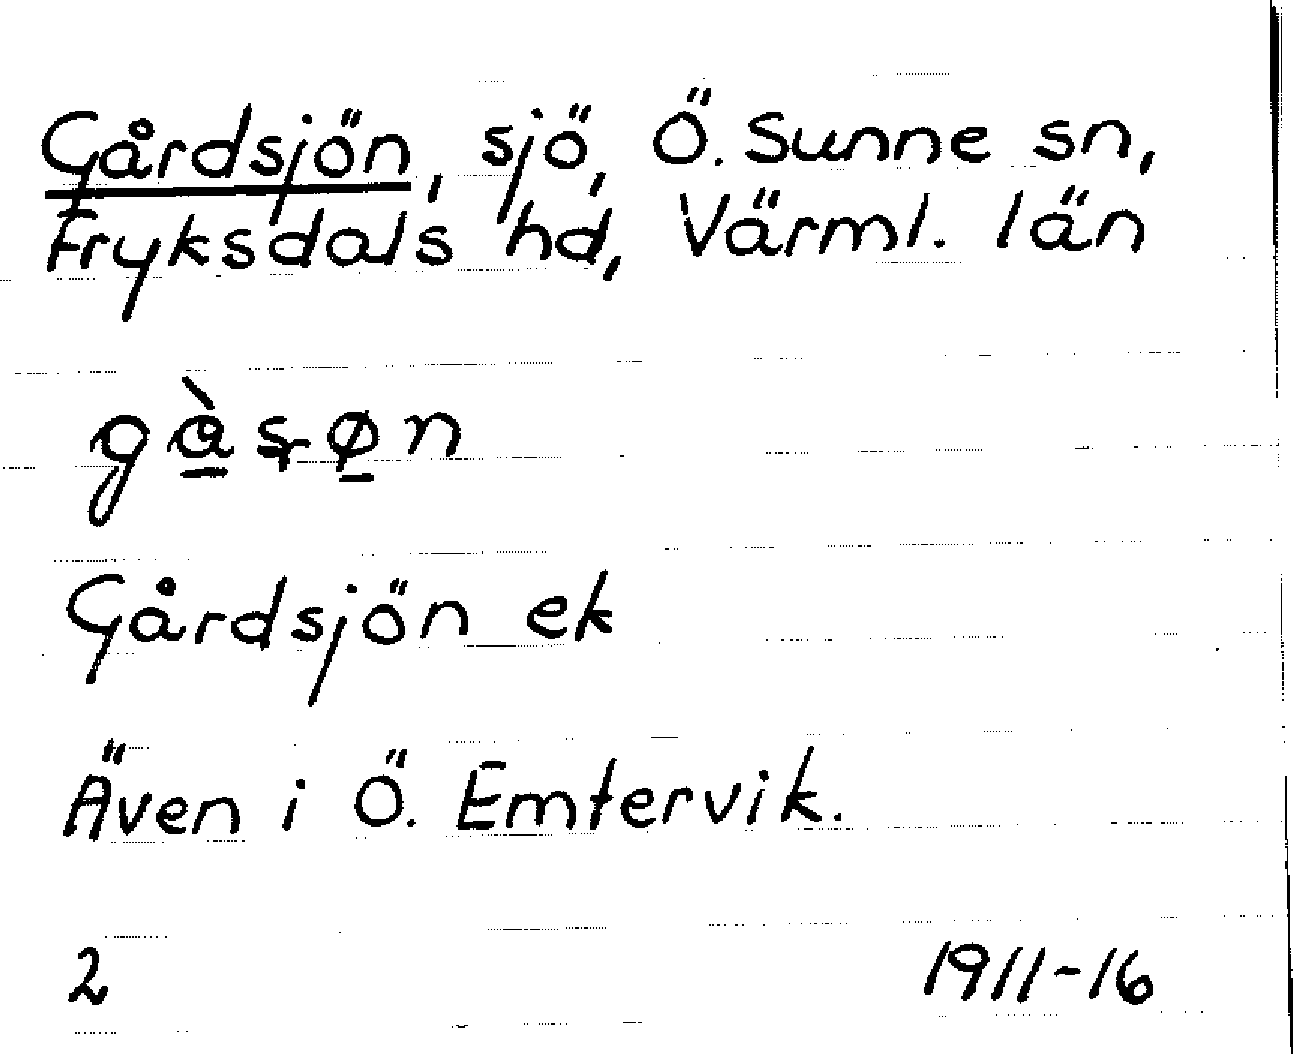 Gårdsjön, sjö, Ö. Sunne sn,
Fryksdals hd, Värml. län
Gårdsjön ek
Även i Ö. Emtervik.
2 1911-16